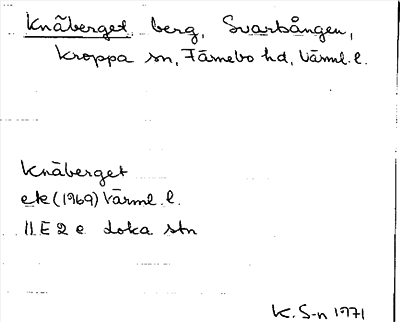 Knäberget berg, Svartbången,
Kroppa sn, Färnebo hd, Värml. l.
Knäberget
ek (1969) Värml. l.
11 E 2 e Loka stn
K. S-n 1971